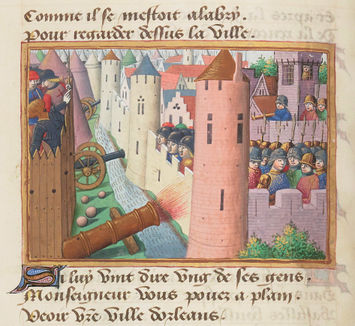 Comme il se mestoit alabry.
Pour regarder dessus la ville
Si luy vint dire vng de ses gens
Monseigneur vous pouez a plain
Veoir vre ville dorleans.